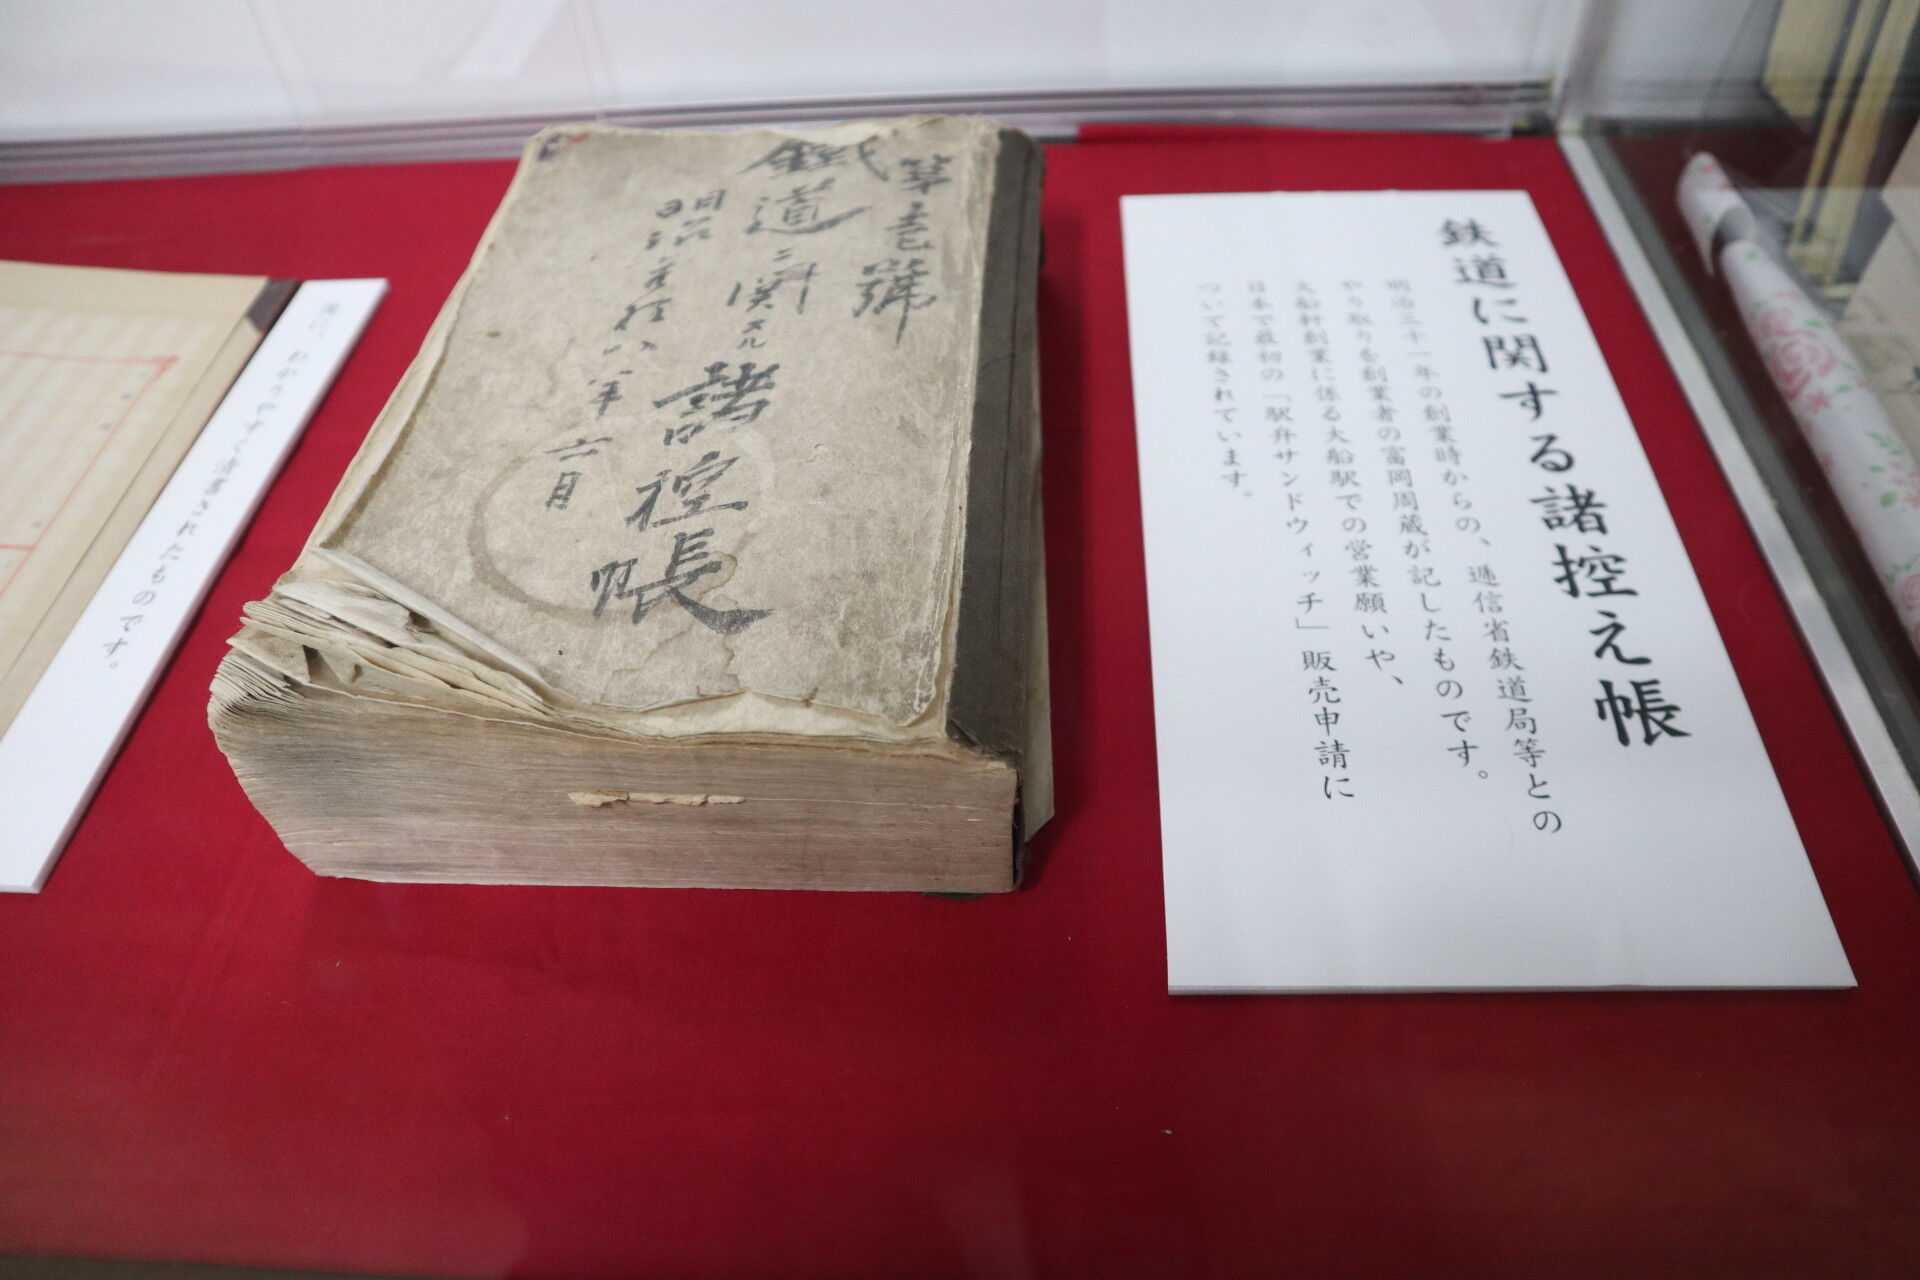 鉄道に関する諸控え帳
明治三十一年の創業時からの、逓信省鉄道局等との
やり取りを創業者の富岡周蔵が記したものです。
大船軒創業に係る大船駅での営業願いや、
日本で最初の「駅弁サンドウィッチ」販売申請に
ついて記録されています。
第壱號
鐵道ニ関スル諸控帳
明治参拾八年六月
わかりやすく清書されたものです。